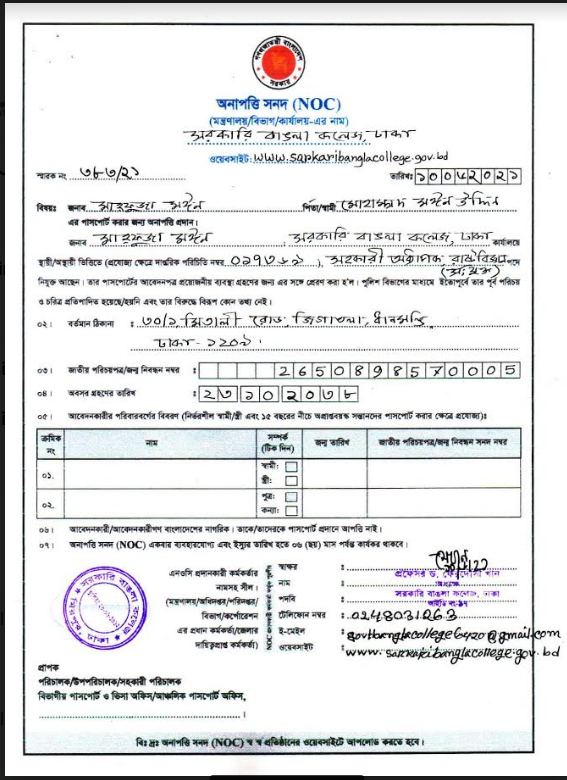 গণপ্রজাতন্ত্রী বাংলাদেশ
সরকার
অনাপত্তি সনদ (NOC)
(মন্ত্রণালয়/বিভাগ/কার্যালয়-এর নাম)
সরকারি বাঙলা কলেজ, ঢাকা
ওয়েবসাইট: www.sarkaribanglacollege.gov.bd
স্মারক নং ৩৮৩/২১ তারিখঃ ১০০৪২০২১
বিষয়ঃ জনাব মাহফুজা মঈন পিতা/স্বামী মোহাম্মদ মঈন উদ্দিন
এর পাসপোর্ট করার জন্য অনাপত্তি প্রদান।
জনাব মাহফুজা মঈন, সরকারি বাঙলা কলেজ, ঢাকা কার্যালয়ে
স্থায়ী/অস্থায়ী ভিত্তিতে (প্রযোজ্য ক্ষেত্রে দাপ্তরিক পরিচিতি নম্বর ), সহকারী অধ্যাপক রাষ্ট্রবিজ্ঞান পদে
নিযুক্ত আছেন। তার পাসপোর্টের আবেদনপত্র প্রয়োজনীয় ব্যবস্থা গ্রহণের জন্য এর সঙ্গে প্রেরণ করা হ'ল। পুলিশ বিভাগের মাধ্যমে ইতোপূর্বে তার পূর্ব পরিচয়
ও চরিত্র প্রতিপাদিত হয়েছে/হয়নি এবং তার বিরুদ্ধে বিরূপ কোন তথ্য নেই।
০২। বর্তমান ঠিকানা : ৩০/১, মিতালী রোড, জিগাতলা, ধানমন্ডি
ঢাকা-১২০৯।
০৩। জাতীয় পরিচয়পত্র/জন্ম নিবন্ধন নম্বর : 2650898570005
০৪। অবসর গ্রহণের তারিখ : ২৩১০২০৩৮
০৫। আবেদনকারীর পরিবারবর্গের বিবরণ (নির্ভরশীল স্বামী/স্ত্রী এবং ১৫ বছরের নীচে অপ্রাপ্তবয়স্ক সন্তানদের পাসপোর্ট করার ক্ষেত্রে প্রযোজ্য)ঃ
ক্রমিক নং নাম সম্পর্ক (টিক দিন) জন্ম তারিখ জাতীয় পরিচয়পত্র/জন্ম নিবন্ধন সনদ নম্বর
০১. স্বামী:
স্ত্রী:
০২. পুত্র:
কন্যা:
০৬। আবেদনকারী/আবেদনকারীগণ বাংলাদেশের নাগরিক। তাকে/তাদেরকে পাসপোর্ট প্রদানে আপত্তি নাই।
০৭। অনাপত্তি সনদ (NOC) একবার ব্যবহারযোগ্য এবং ইস্যুর তারিখ হতে ০৬ (ছয়) মাস পর্যন্ত কার্যকর থাকবে।
এনওসি প্রদানকারী কর্মকর্তার স্বাক্ষর :
নামসহ সীল। নাম : প্রফেসর ড. ফেরদৌসী খান
(মন্ত্রণালয়/অধিদপ্তর/পরিদপ্তর/ পদবি : অধ্যক্ষ
সরকারি বাঙলা কলেজ, ঢাকা
বিভাগ/কর্পোরেশন টেলিফোন নম্বর : 0248031263
এর প্রধান কর্মকর্তা/জেলার ই-মেইল : govtbanglacollege6420@gmail.com
দায়িত্বপ্রাপ্ত কর্মকর্তা) ওয়েবসাইট : www.sarkaribanglacollege.gov.bd
সরকারি বাঙলা কলেজ
ঢাকা
প্রাপক
পরিচালক/উপপরিচালক/সহকারী পরিচালক
বিভাগীয় পাসপোর্ট ও ভিসা অফিস/আঞ্চলিক পাসপোর্ট অফিস,
বিঃ দ্রঃ অনাপত্তি সনদ (NOC) স্ব স্ব প্রতিষ্ঠানের ওয়েবসাইটে আপলোড করতে হবে।